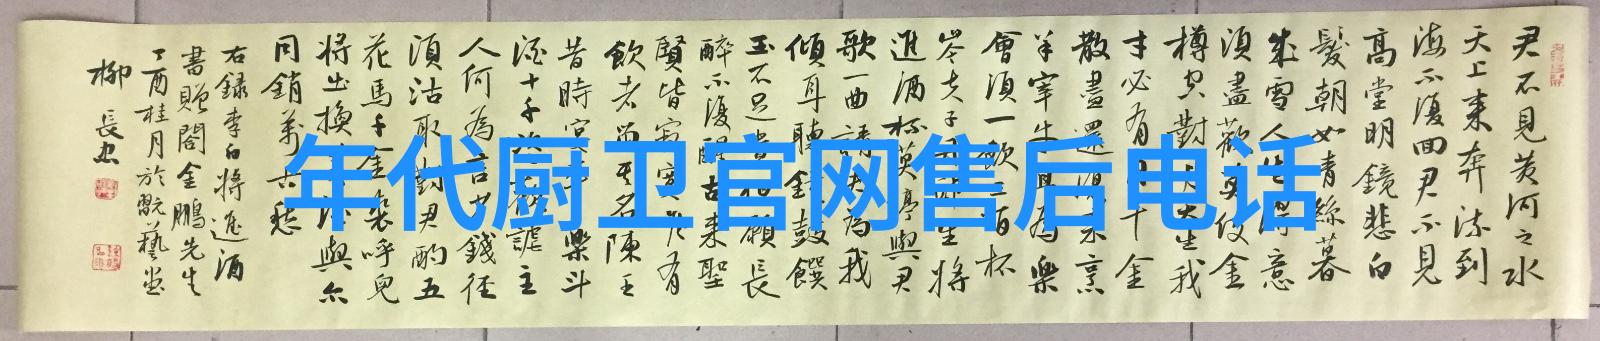 年代厨卫官网售后电话
君不見黄河之水
天上来奔流到
海不復回君不見
高堂明鏡悲白
髮朝如青絲暮
成雪人生得意
須盡歡莫使金
樽空對月天生我
才必有用千金
散盡還復来烹
羊宰牛且為樂
會須一飲三百杯
岑夫子丹丘生将
進酒杯莫停與君
歌一曲請君為我
傾耳聽鐘鼓饌
玉不足貴但願長
醉不復醒古来聖
賢皆寂寞惟有
飲者留其名陳王
昔時宴平樂斗
酒十千恣歡謔主
人何為言少錢径
須沽取對君酌五
花馬千金裘呼兒
将出換美酒與尔
同銷萬古愁
右録李白将進酒
書贈閤金鵬先生
丁酉桂月於翫藝堂
柳長忠